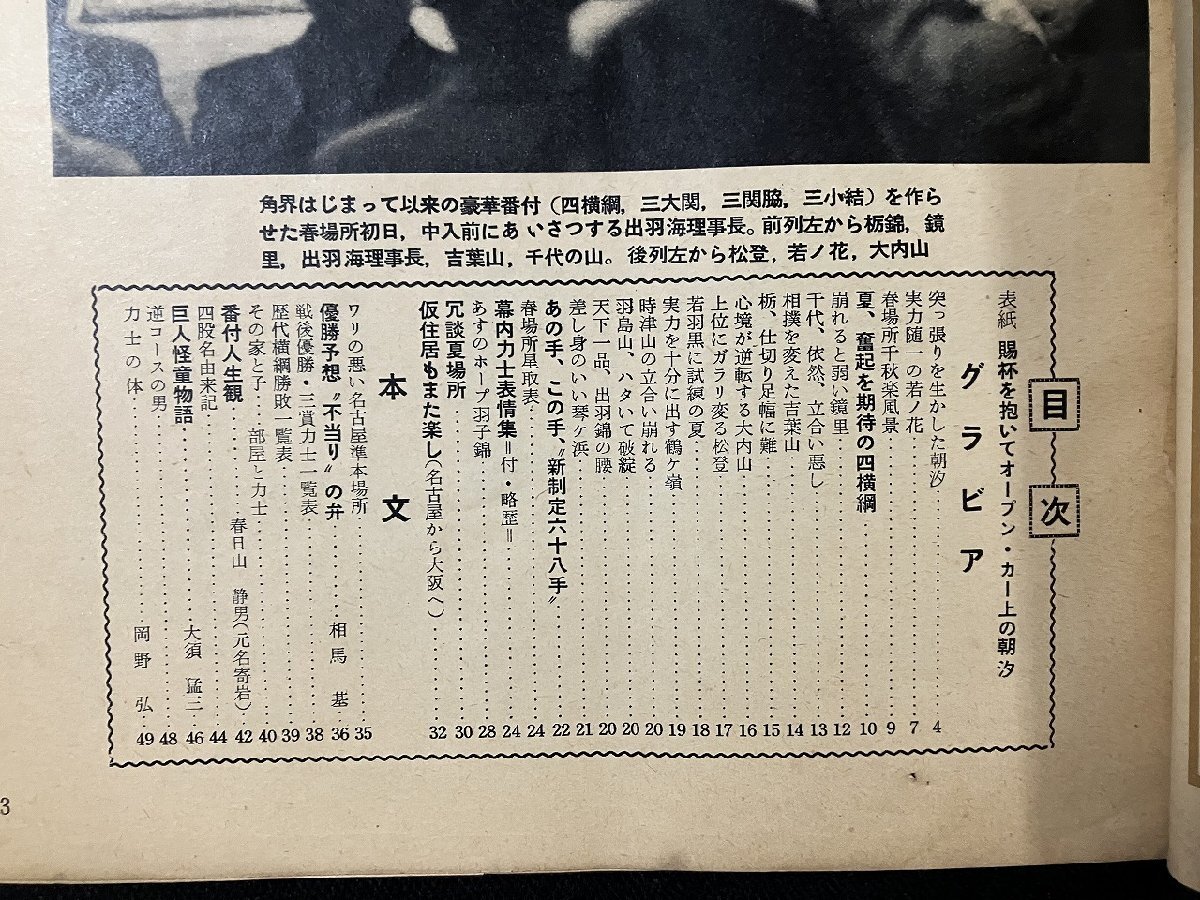 角界はじまって以来の豪華番付（四横綱，三大関，三関脇，三小結）を作ら
せた春場所初日，中入前にあいさつする出羽海理事長。前列左から栃錦，鏡
里，出羽海理事長，吉葉山，千代の山。後列左から松登，若ノ花，大内山
目次
表紙 賜杯を抱いてオープン・カー上の朝汐
グラビア
突っ張りを生かした朝汐……4
実力随一の若ノ花……7
春場所千秋楽風景……9
夏、奮起を期待の四横綱……10
崩れると弱い鏡里……12
千代、依然、立合い悪し……13
相撲を変えた吉葉山……14
栃、仕切り足幅に難……15
心境が逆転する大内山……16
上位にガラリ変る松登……17
若羽黒に試練の夏……18
実力を十分に出す鶴ケ嶺……19
時津山の立合い崩れる……20
羽島山、ハタいて破綻……20
天下一品、出羽錦の腰……20
差し身のいい琴ヶ浜……21
あの手、この手、〝新制定六十八手〟……22
春場所星取表……24
幕内力士表情集＝付・略歴＝……24
あすのホープ羽子錦……28
冗談夏場所……30
仮住居もまた楽し（名古屋から大阪へ）……32
本文
ワリの悪い名古屋準本場所……35
優勝予想〝不当り〟の弁……相馬 基……36
戦後優勝・三賞力士一覧表……38
歴代横綱勝敗一覧表……39
その家と子……部屋と力士……40
番付人生観……春日山 静男（元名寄岩）……42
四股名由来記……44
巨人怪童物語……大須 猛三……46
逆コースの男……48
力士の体……岡野 弘……49
3